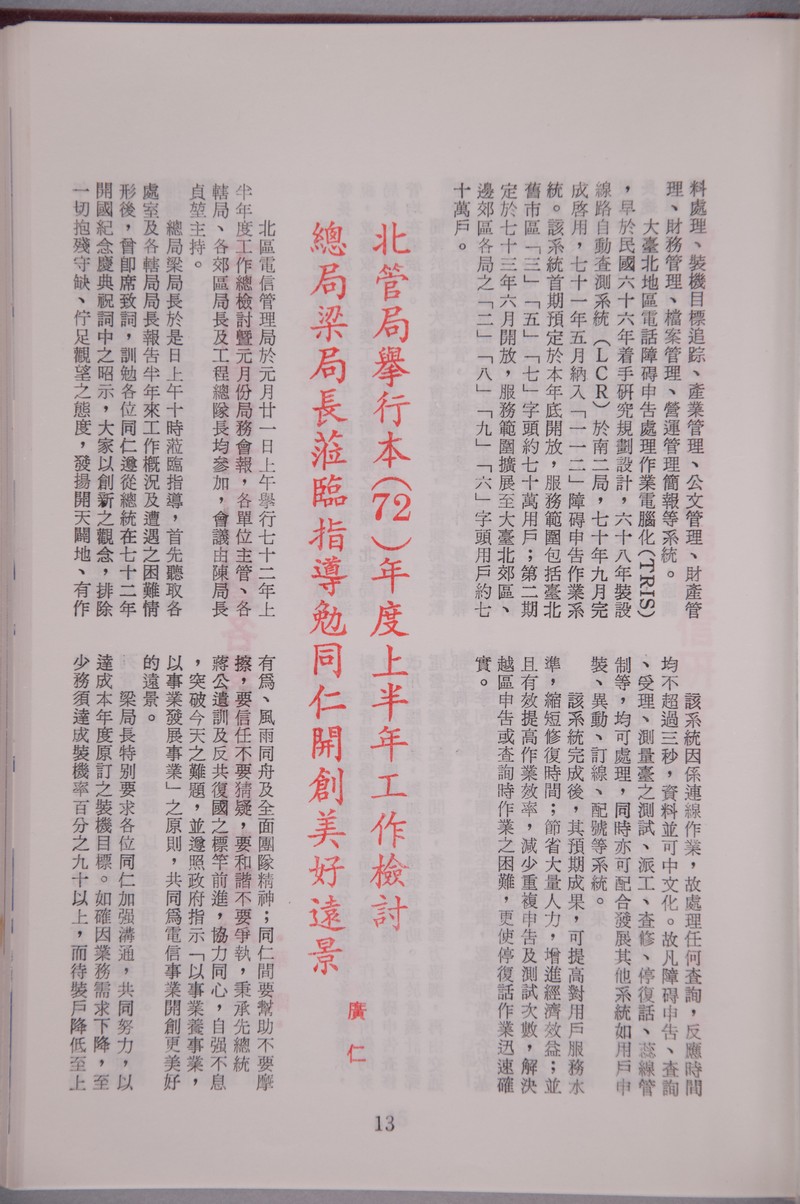 料處理、裝機目標追踪、產業管理、公文管理、財產管
理、財務管理、檔案管理、營運管理簡報等系統。
大臺北地區電話障碍申告處理作業電腦化(TRIS)
，早於民國六十六年着手研究規劃設計，六十八年裝設
線路自動查測系統（LCR）於南二局，七十年九月完
成啓用，七十一年五月納入「一一二」障碍申告作業系
統。該系統首期預定於本年底開放，服務範圍包括臺北
舊市區「三」「五」「七」字頭約七十萬用戶；第二期
定於七十三年六月開放，服務範圍擴展至大臺北郊區、
邊郊區各局之「二」「八」「九」「六」字頭用戶約七
十萬戶。
該系統因係連線作業，故處理任何查詢，反應時間
均不超過三秒，資料並可中文化。故凡障碍申告、查詢
、受理、測量臺之測試、派工、查修、停復話、蕊線管
制等，均可處理，同時亦可配合發展其他系統如用戶申
裝、異動、訂線、配號等系統。
該系統完成後，其預期成果，可提高對用戶服務水
準，縮短修復時間；節省大量人力，增進經濟效益；並
且有效提高作業效率，減少重複申告及測試次數，解決
越區申告或查詢時作業之困難，更使停復話作業迅速確
實。
北管局舉行本(72)年度上半年工作檢討
總局梁局長蒞臨指導勉同仁開創美好遠景
廣仁
北區電信管理局於元月廿一日上午舉行七十二年上
半年度工作總檢討暨元月份局務會報，各單位主管、各
轄局、各郊區局長及工程總隊長均參加，會議由陳局長
貞堃主持。
總局梁局長於是日上午十時蒞臨指導，首先聽取各
處室及各轄局局長報告半年來工作概況及遭遇之困難情
形後，曾即席致詞，訓勉各位同仁遵從總統在七十二年
開國紀念慶典祝詞中之昭示，大家以創新之觀念，排除
一切抱殘守缺、佇足觀望之態度，發揚開天闢地、有作
有為、風雨同舟及全面團隊精神；同仁間要幫助不要摩
擦，要信任不要猜疑，要和諧不要爭執，秉承先總統
蔣公遺訓及反共復國之標竿前進，協力同心，自强不息
，突破今天之難題，並遵照政府指示「以事業養事業，
以事業發展事業」之原則，共同為電信事業開創更美好
的遠景。
梁局長特別要求各位同仁加强溝通，共同努力，以
達成本年度原訂之裝機目標。如確因業務需求下降，至
少務須達成裝機率百分之九十以上，而待裝戶降低至上
13